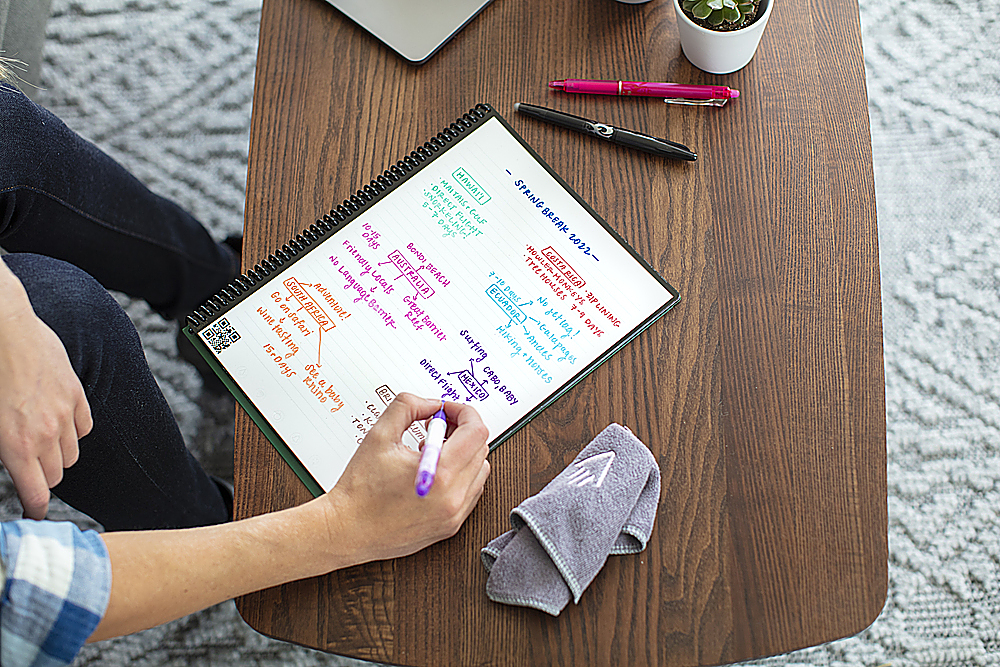 - SPRING BREAK 2022 -
HAWAI'I
• MAITAIS + GOLF
• DIRECT FLIGHT
• SNORKELING!
8-9 DAYS
COSTA RICA
• HOWLER MONKEYS
• ZIPLINING
• TREE HOUSES
7-9 DAYS
10-15 DAYS
BONDI BEACH
AUSTRALIA
Friendly Locals
No Language Barrier
Great Barrier Reef
7-10 DAYS
No jetlag!
ECUADOR
Galapagos
Andes
Hiking + Horses
Adventure!
SOUTH AFRICA
Go on Safari
Wine tasting
15+ DAYS
See a baby rhino
Surfing
CABO, BABY
MEXICO
Direct Flight